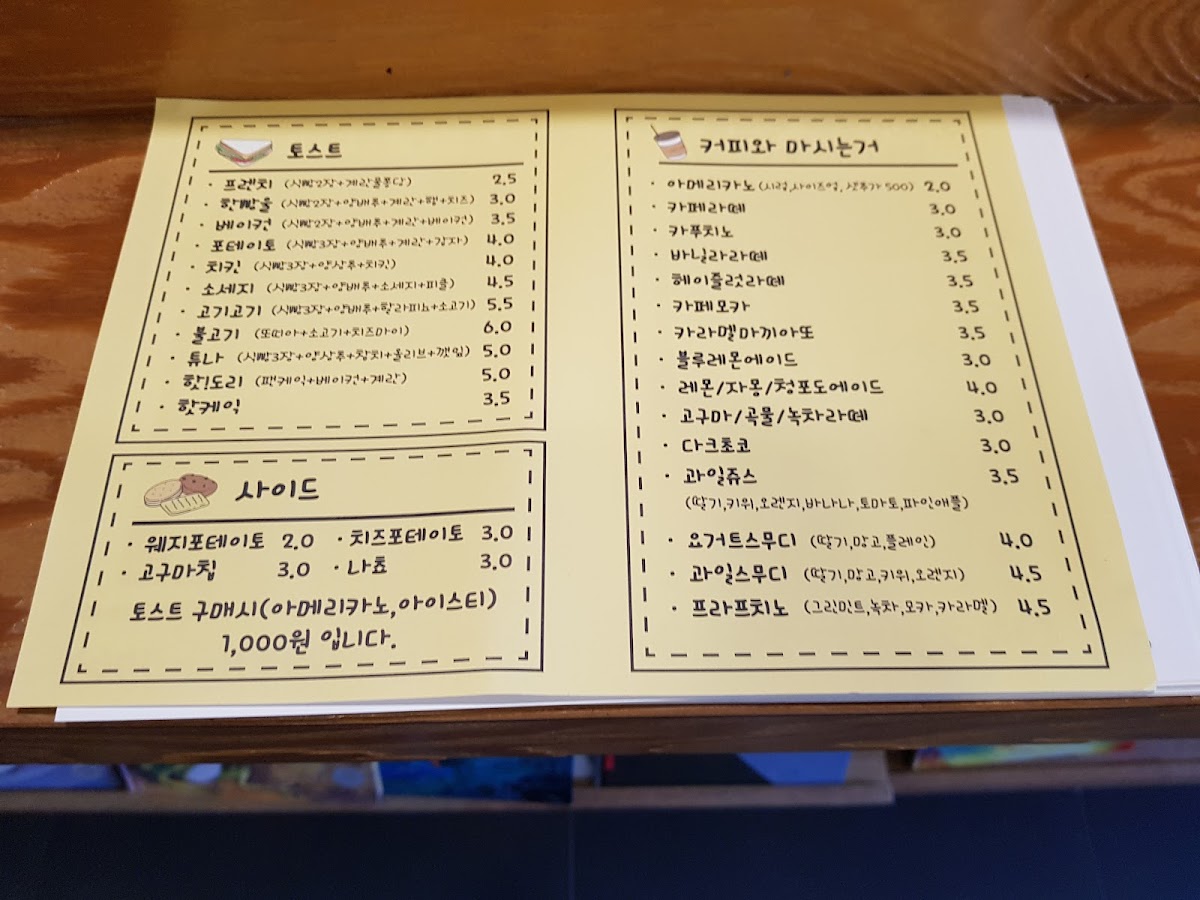 토스트
· 프렌치 (식빵2장+계란물퐁당) 2.5
· 한빱울 (식빵2장+양배추+계란+햄+치즈) 3.0
· 베이컨 (식빵2장+양배추+계란+베이컨) 3.5
· 포테이토 (식빵3장+양배추+계란+감자) 4.0
· 치킨 (식빵3장+양상추+치킨) 4.0
· 소세지 (식빵3장+양배추+소세지+피클) 4.5
· 고기고기 (식빵3장+양배추+할라피뇨+소고기) 5.5
· 불고기 (또띠아+소고기+치즈마이) 6.0
· 튜나 (식빵3장+양상추+참치+올리브+깻잎) 5.0
· 핫!도리 (팬케익+베이컨+계란) 5.0
· 핫케익 3.5
사이드
· 웨지포테이토 2.0 · 치즈포테이토 3.0
· 고구마칩 3.0 · 나쵸 3.0
토스트 구매시(아메리카노,아이스티)
1,000원 입니다.
커피와 마시는거
· 아메리카노 (시럽,사이즈업, 샷추가 500) 2.0
· 카페라떼 3.0
· 카푸치노 3.0
· 바닐라라떼 3.5
· 헤이즐럿라떼 3.5
· 카페모카 3.5
· 카라멜마끼아또 3.5
· 블루레몬에이드 3.0
· 레몬/자몽/청포도에이드 4.0
· 고구마/곡물/녹차라떼 3.0
· 다크초코 3.0
· 과일쥬스 3.5
(딸기,키위,오렌지,바나나,토마토,파인애플)
· 요거트스무디 (딸기,망고,플레인) 4.0
· 과일스무디 (딸기,망고,키위,오렌지) 4.5
· 프라프치노 (그린민트,녹차,모카,카라멜) 4.5